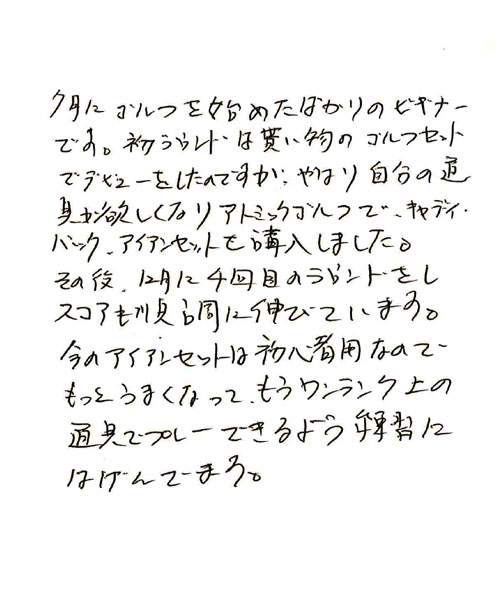 7月にゴルフを始めたばかりのビギナー
です。初ラウンドは貰い物のゴルフセット
でデビューをしたのですが、やはり自分の道
具が欲しくなりアトミックゴルフで、キャディ・
バック、アイアンセットを購入しました。
その後、12月に4回目のラウンドをし
スコアも順調に伸びています。
今のアイアンセットは初心者用なので
もっとうまくなって、もうワンランク上の
道具でプレーできるよう練習に
はげんでます。